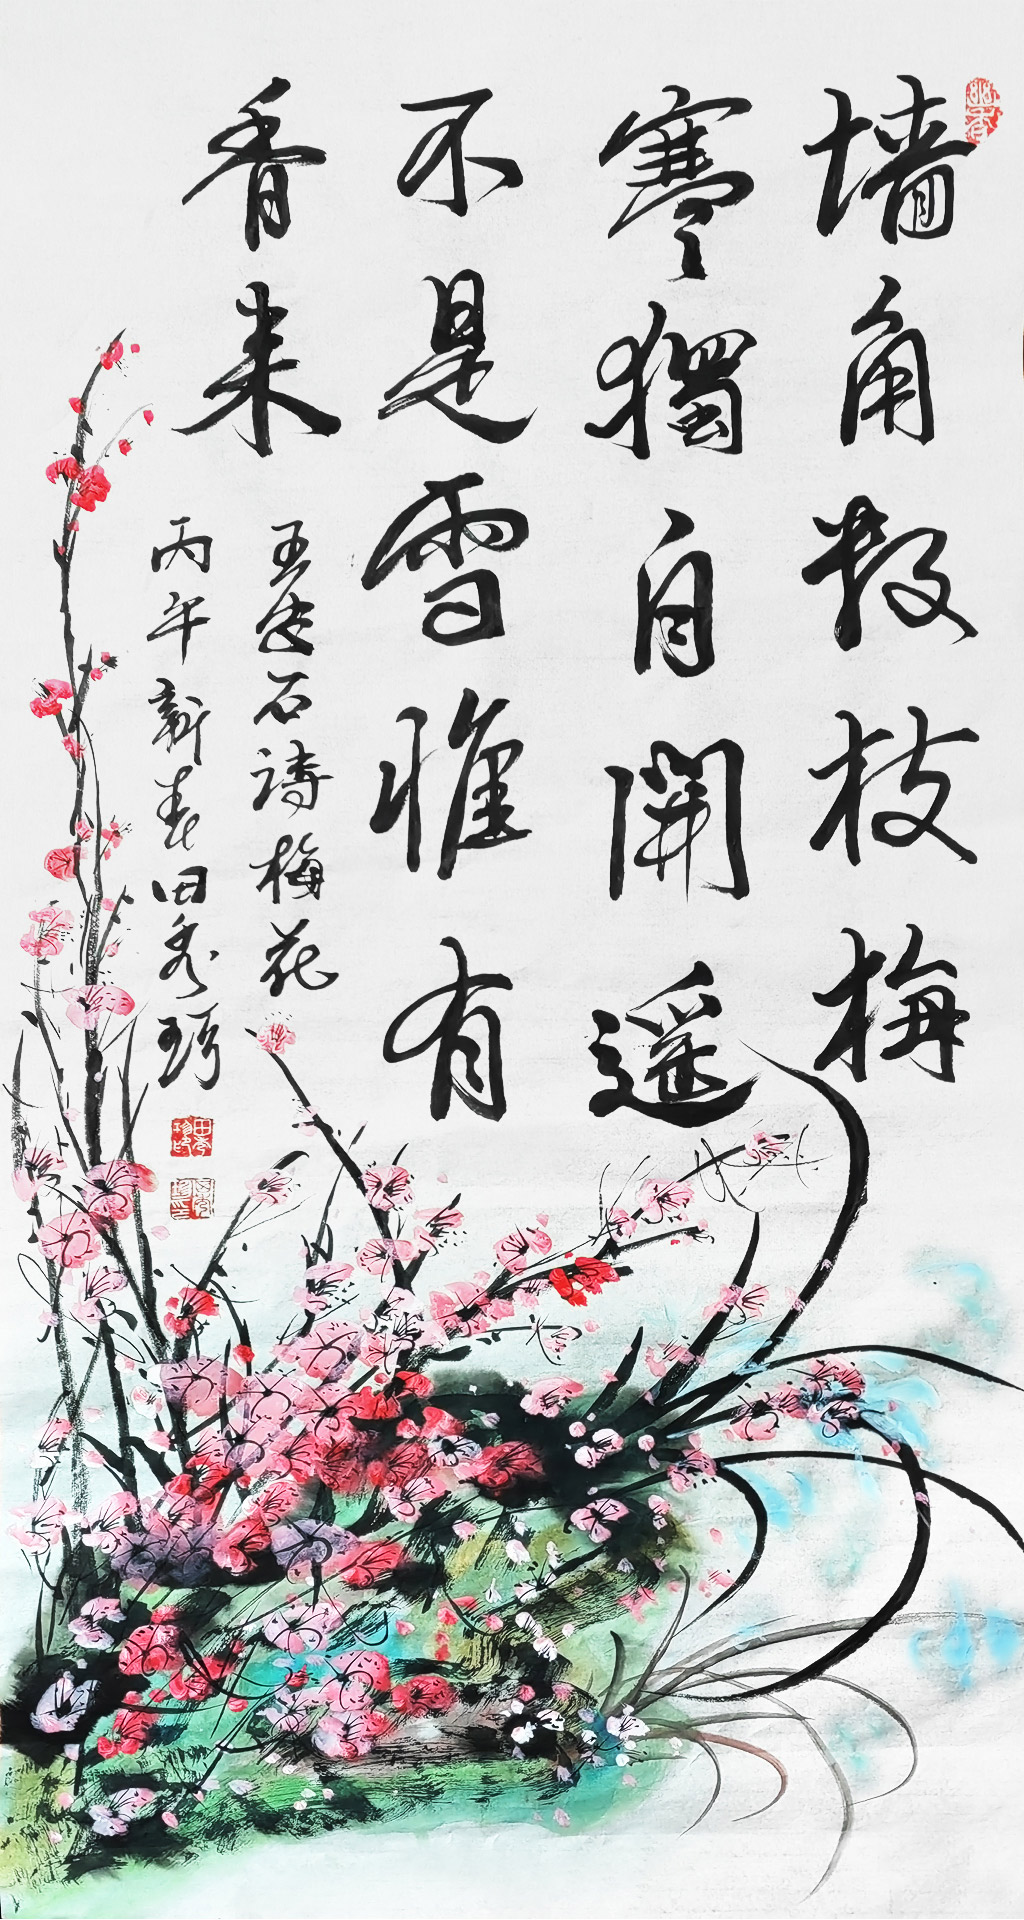 墙角数枝梅
寒獨自開遥
不是雪惟有
香来
王安石詩梅花
丙午新春田秀珍
田秀珍印